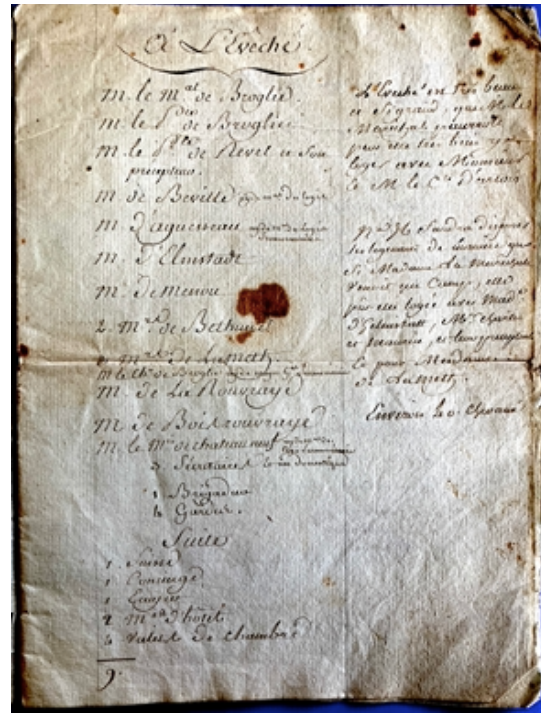 À L'Evêché
M. le M.al de Broglie.
M. le P.ce de Broglie
M. le P.ce de Revel et Son
précepteur.
M. de Beville du logis
M. D'aguesseau
M. D'Elmstadt
M. De Menou
2. M.rs de Bethune
M.rs de Lameth.
M. le Ch.er de Broglie
M. de La Rouvraye
M. de Boisrouvraye
M. le M.is de chateauneuf
3 Sécrétaires et un domestique
1 Brigadier
4 Gardes.
Suite
1 Suisse
1 Concierge
1 Ecuyer
2 M.es d'hotel
4 valets de chambre
9.
L'Evêché est très beau
et Si grand, que M. le
Maréchal pourroit
peut être très bien y
loger avec Monsieur
et M. le C.te D'artois
N.a Il faudra disposer
les logemens de maniere que
Si Madame La Maréchale
venoit au Camp, elle
put être logée avec Mad.e
D'Helmstatt, M.rs Charles
et Maurice, et leur précepteur
et pour Madame
de Lameth.
Environ 40. chevaux